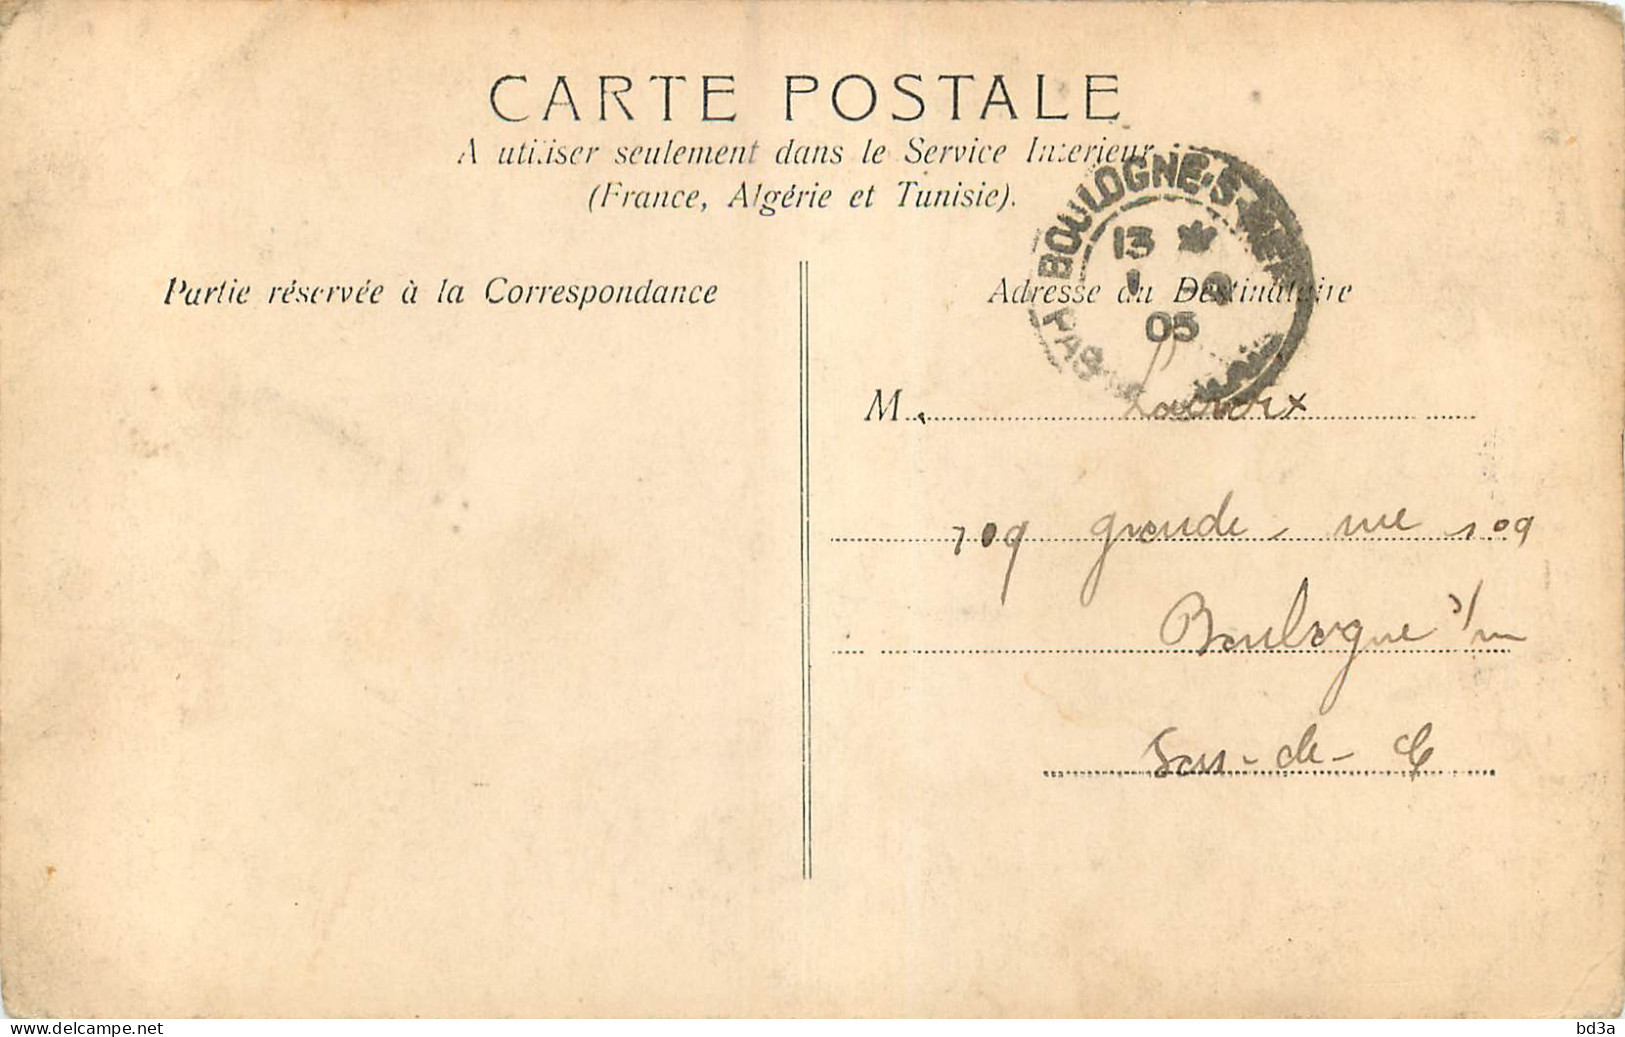 CARTE POSTALE
A utiliser seulement dans le Service Interieur
(France, Algérie et Tunisie).
BOULOGNE-S-MER
13
1
05
PAS
Partie réservée à la Correspondance
Adresse du Destinataire
M. Lacroix
109 grande rue 109
Boulogne s/m
Pas-de-C
www.delcampe.net
bd3a